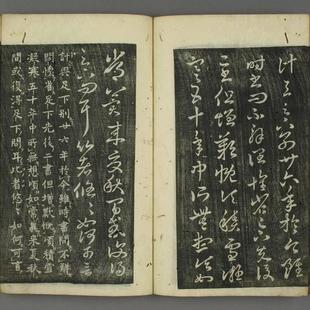 計與足下別廿六年於今雖
時書問不解闊懷省足下先後
二書但增歎慨頃積雪凝
寒五十年中所無想頃如
常冀來夏秋間或復得
足下問耳比者悠悠如何可言
計與足下別廿六年於今雖時書問不解
闊懷省足下先後二書但增歎慨頃積雪
凝寒五十年中所無想頃如常冀來夏秋
間或復得足下問耳比者悠悠如何可言